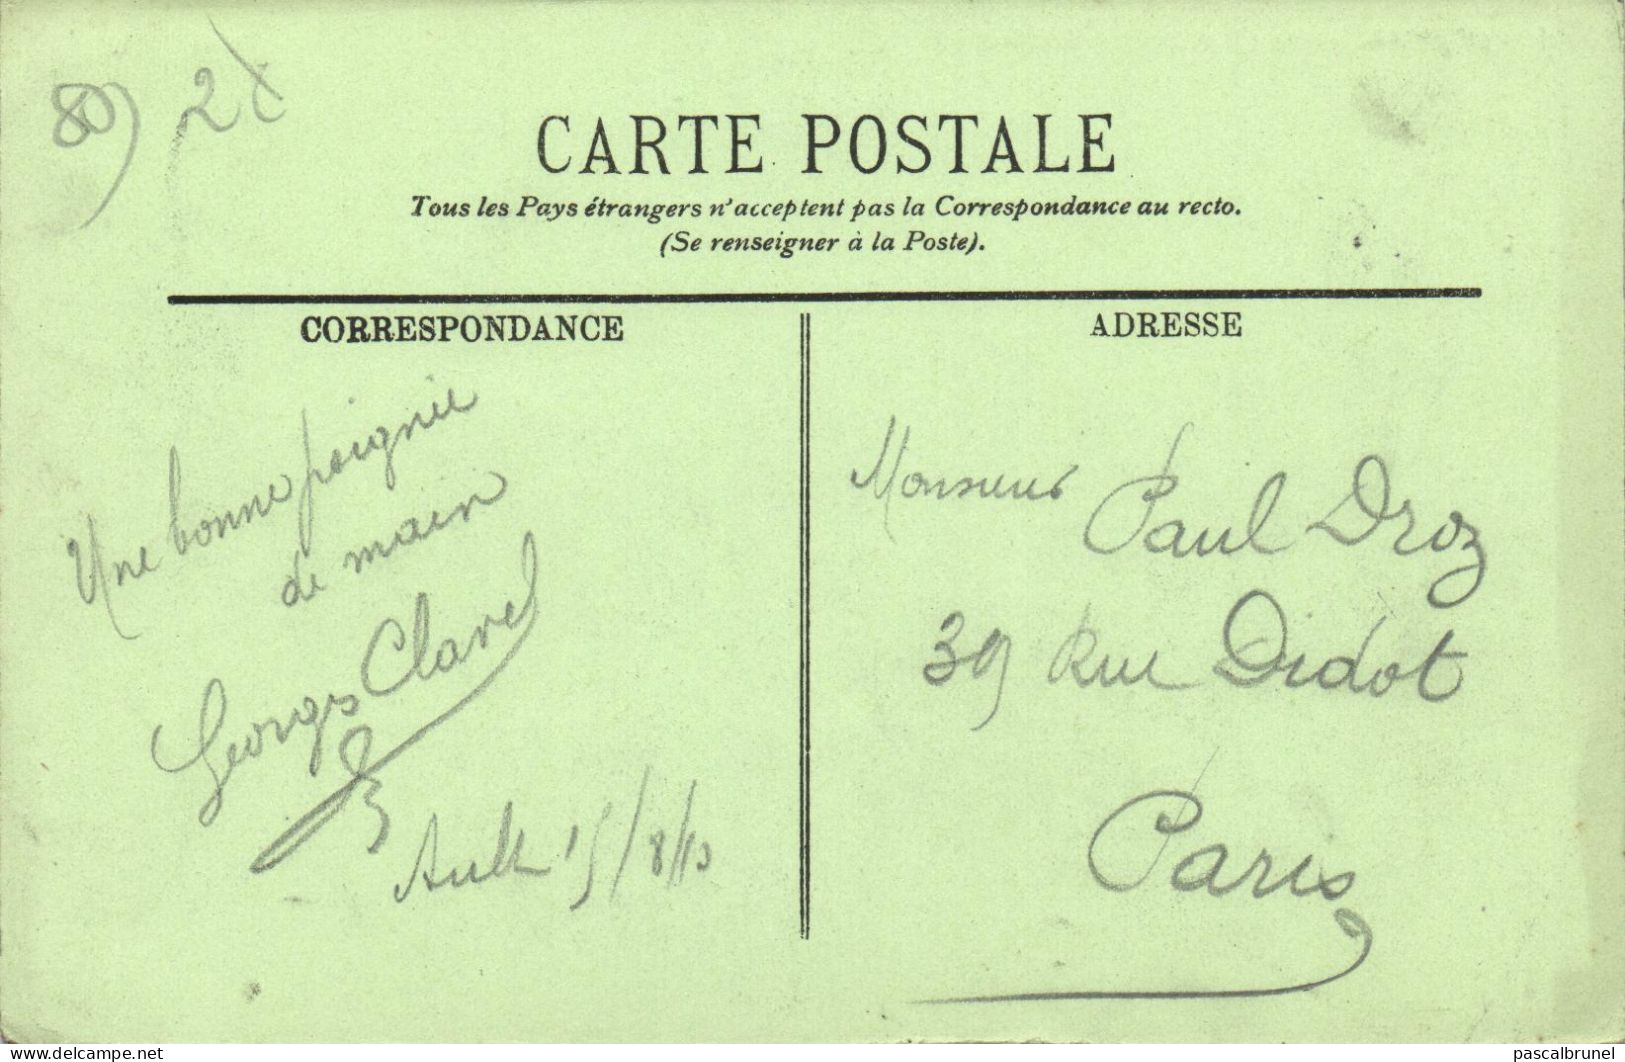 80) 2
CARTE POSTALE
Tous les Pays étrangers n'acceptent pas la Correspondance au recto.
(Se renseigner à la Poste).
CORRESPONDANCE
Une bonne poignée
de main
Georges Clavel
Ault 15/8/13
ADRESSE
Monsieur Paul Droz
39 Rue Didot
Paris
delcampe.net
pascalbrunel